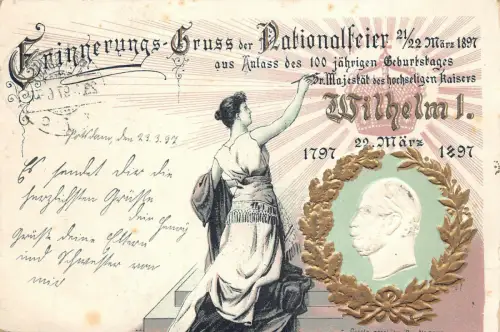 Erinnerungs-Gruss der Nationalfeier 21/22 März 1897
aus Anlass des 100 jährigen Geburtstages
Sr. Majestät des hochseligen Kaisers
Wilhelm I.
22. März
1797 1897
Potsdam, den 23.3.97
Es sendet dir die
herzlichsten Grüsse
dein Henry
Grüsse deine Eltern
und Schwester von
mir